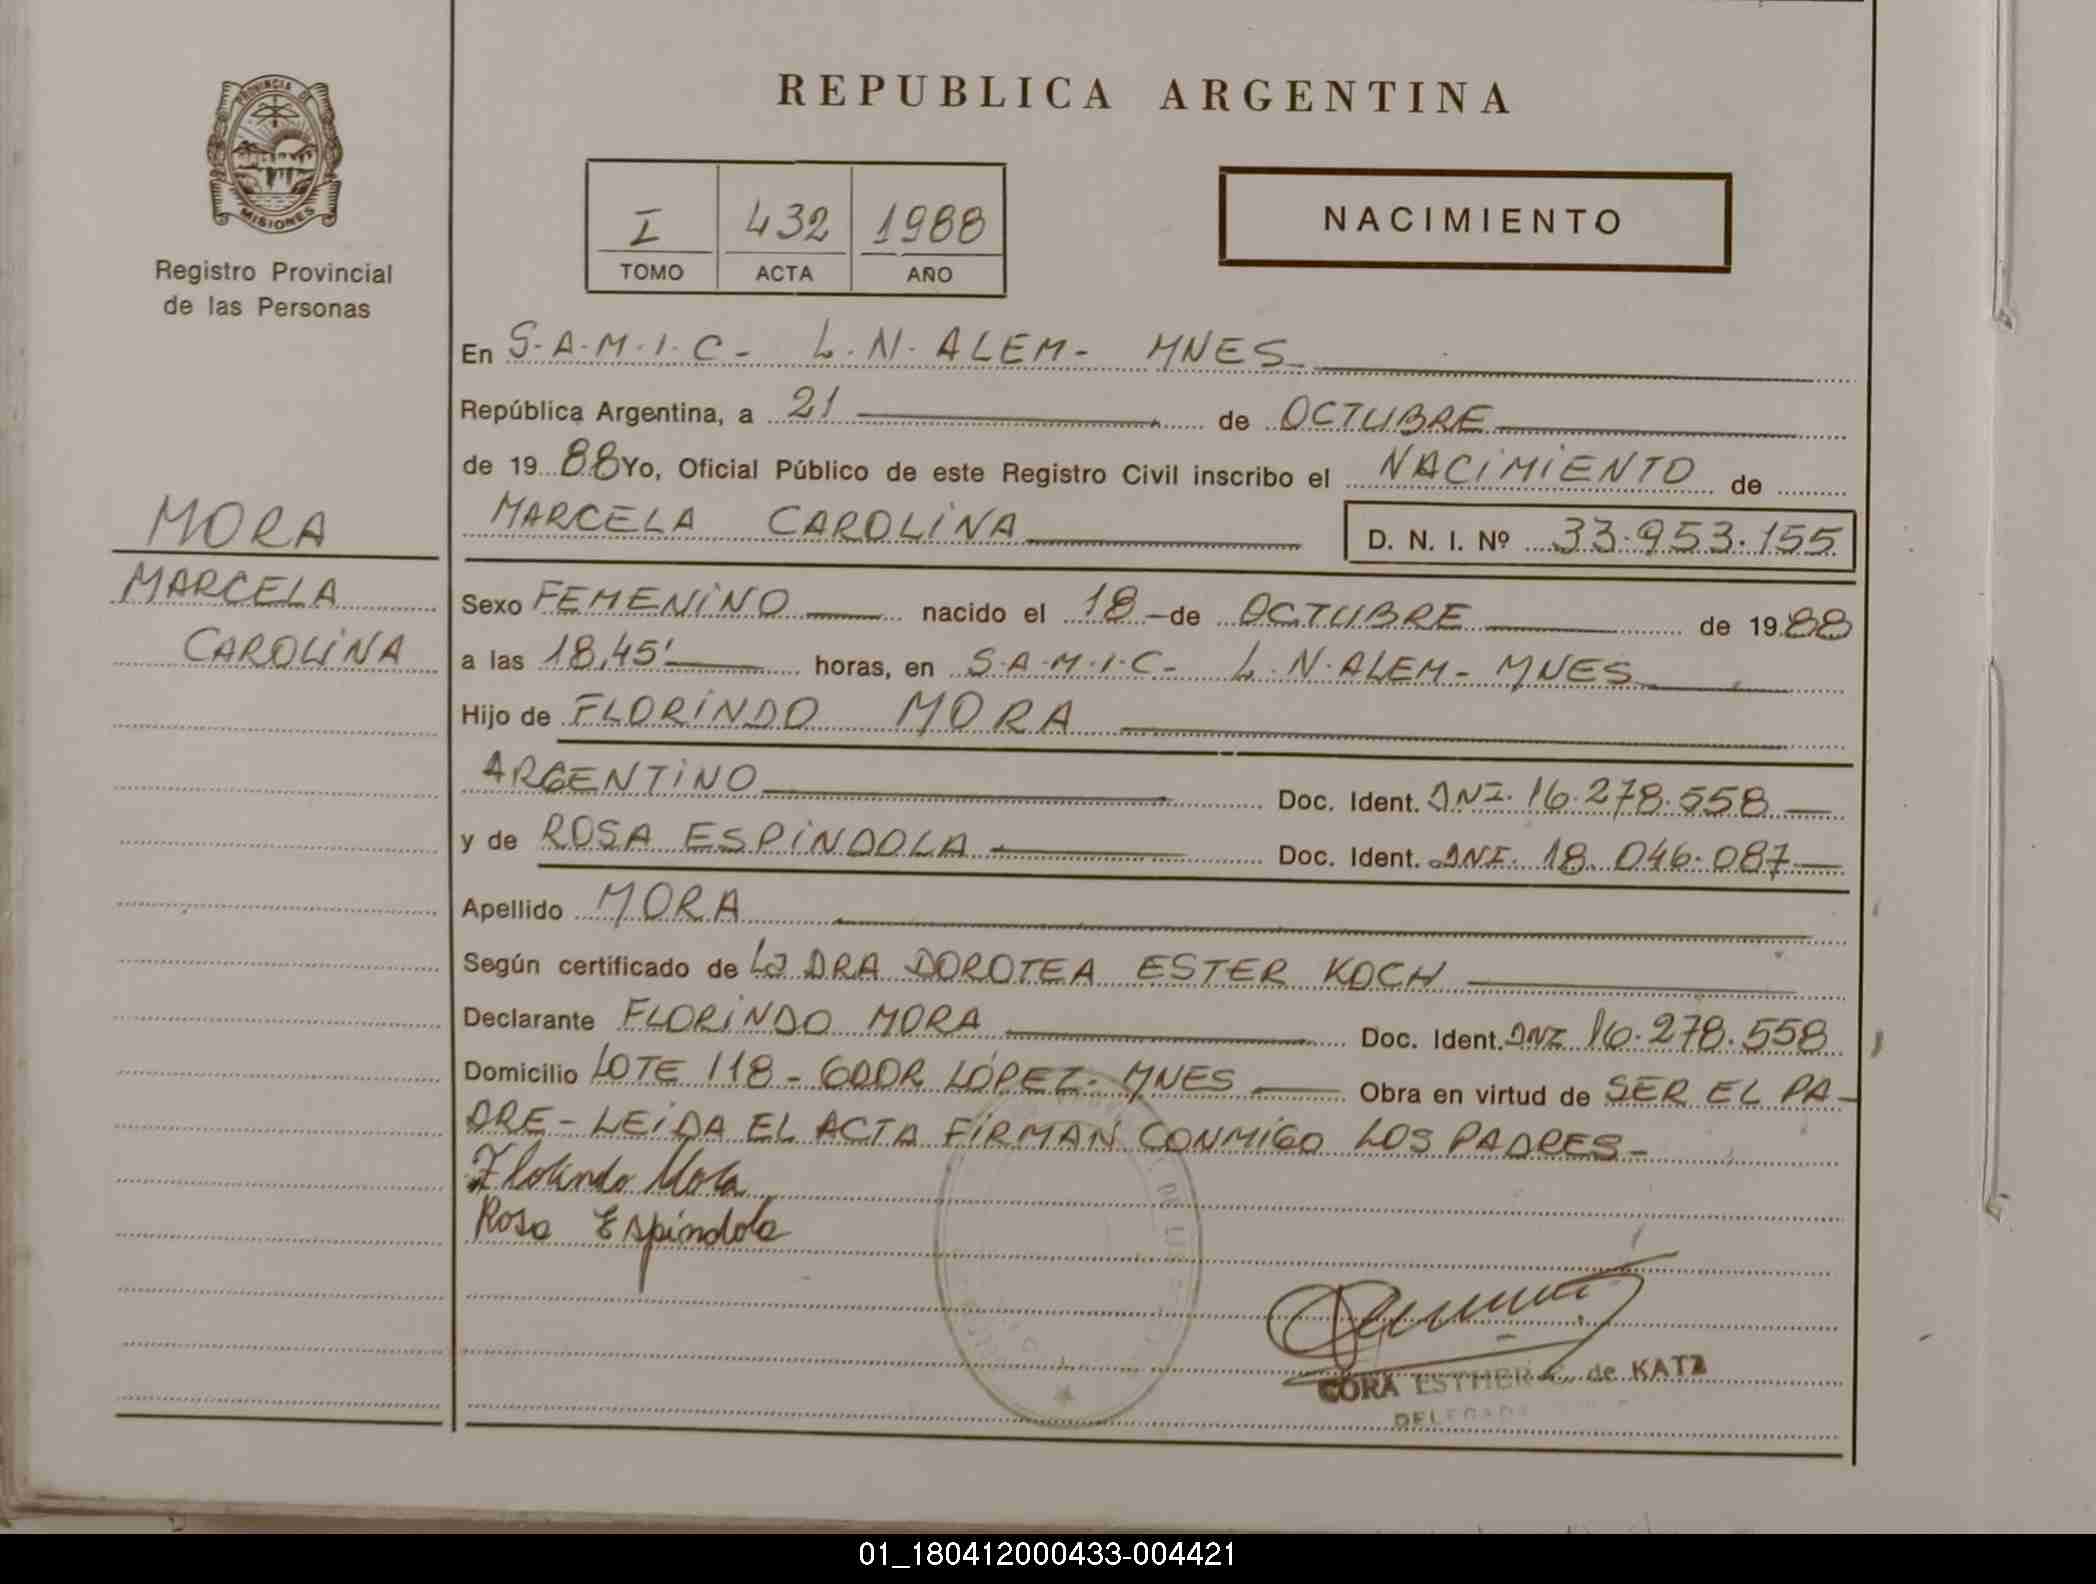 REPUBLICA ARGENTINA
PROVINCIA DE
MISIONES
Registro Provincial
de las Personas
I 432 1988
TOMO ACTA AÑO
NACIMIENTO
En S.A.M.I.C- L.N.ALEM- MNES
República Argentina, a 21 de OCTUBRE
de 19 88 Yo, Oficial Público de este Registro Civil inscribo el NACIMIENTO de
MARCELA CAROLINA D. N. I. Nº 33.953.155
MORA
MARCELA
CAROLINA
Sexo FEMENINO nacido el 18 de OCTUBRE de 19 88
a las 18,45' horas, en S.A.M.I.C- L.N.ALEM- MNES
Hijo de FLORINDO MORA
ARGENTINO Doc. Ident. DNI. 16.278.558
y de ROSA ESPINDOLA Doc. Ident. DNI. 18.046.087
Apellido MORA
Según certificado de La DRA DOROTEA ESTER KOCH
Declarante FLORINDO MORA Doc. Ident. DNI 16.278.558
Domicilio LOTE 118 - GDOR LÓPEZ- MNES Obra en virtud de SER EL PA-
DRE - LEIDA EL ACTA FIRMAN CONMIGO LOS PADRES-
Florindo Mora
Rosa Espindola
CORA ESTHER de KATZ
01_180412000433-004421